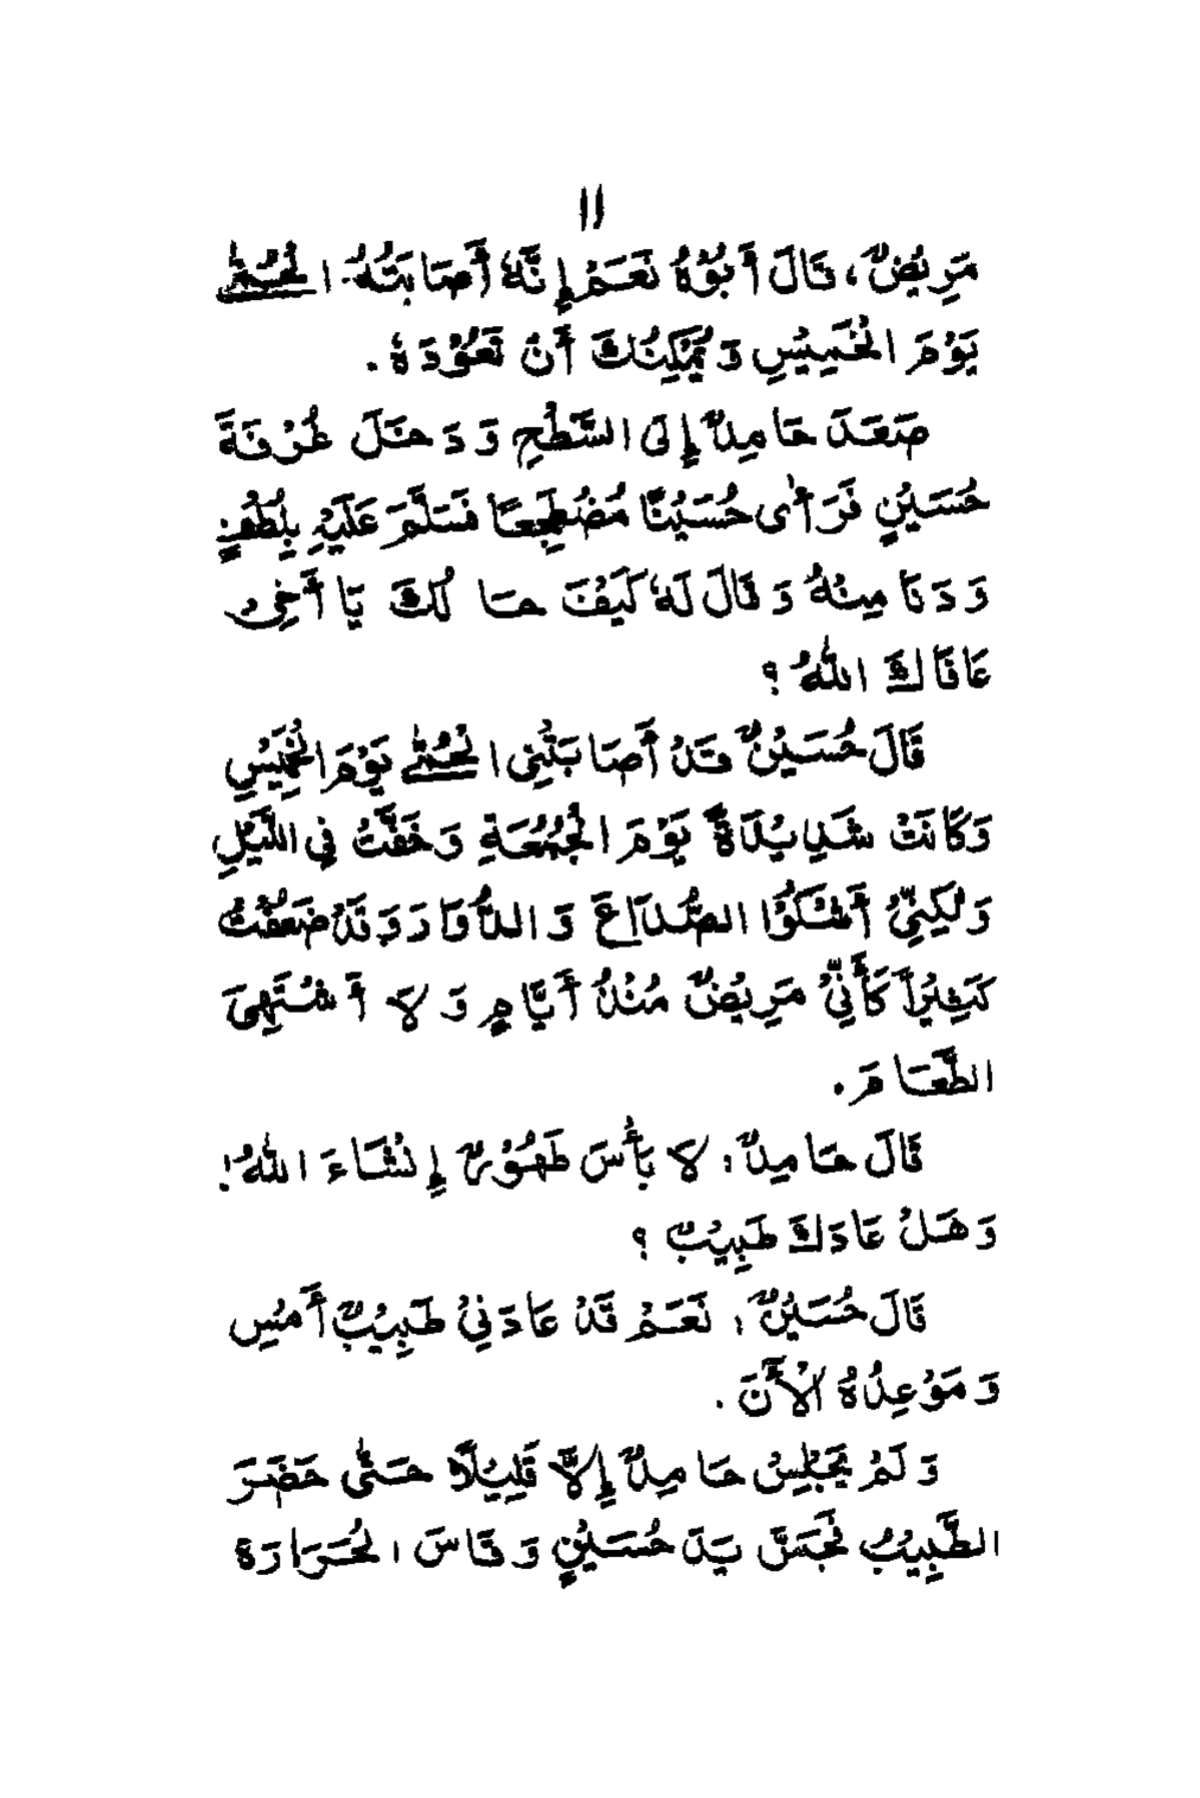 ١١
مَرِيْضٌ، قَالَ أَبُوْهُ نَعَمْ إِنَّهٗ أَصَابَتْهُ الْحُمّٰى
يَوْمَ الْخَمِيْسِ وَيُمْكِنُكَ أَنْ تَعُوْدَهٗ .
صَعَدَ حَامِدٌ إِلَى السَّطْحِ وَدَخَلَ غُرْفَةَ
حُسَيْنٍ فَرَأٰى حُسَيْنًا مُضْطَجِعًا فَسَلَّمَ عَلَيْهِ بِلُطْفٍ
وَدَنَا مِنْهُ وَقَالَ لَهٗ كَيْفَ حَالُكَ يَا أَخِىْ
عَافَاكَ اللّٰهُ ؟
قَالَ حُسَيْنٌ قَدْ أَصَابَتْنِى الْحُمّٰى يَوْمَ الْخَمِيْسِ
وَكَانَتْ شَدِيْدَةً يَوْمَ الْجُمُعَةِ وَخَفَّتْ فِي اللَّيْلِ
وَلٰكِنِّىْ أَشْكُوْا الصُّدَاعَ وَالدُّوَارَ وَقَدْ ضَعُفْتُ
كَثِيْراً كَأَنِّىْ مَرِيْضٌ مُنْذُ أَيَّامٍ وَلَا أَشْتَهِىَ
الطَّعَامَ .
قَالَ حَامِدٌ : لَا بَأْسَ طَهُوْرٌ إِنْشَاءَ اللّٰهُ !
وَهَلْ عَادَكَ طَبِيْبٌ ؟
قَالَ حُسَيْنٌ : نَعَمْ قَدْ عَادَنِىْ طَبِيْبٌ أَمْسِ
وَمَوْعِدُهُ الْأٰنَ .
وَلَمْ يَجْلِسْ حَامِدٌ إِلَّا قَلِيْلًا حَتّٰى حَضَرَ
الطَّبِيْبُ فَجَسَّ يَدَ حُسَيْنٍ وَقَاسَ الْحَرَارَةَ